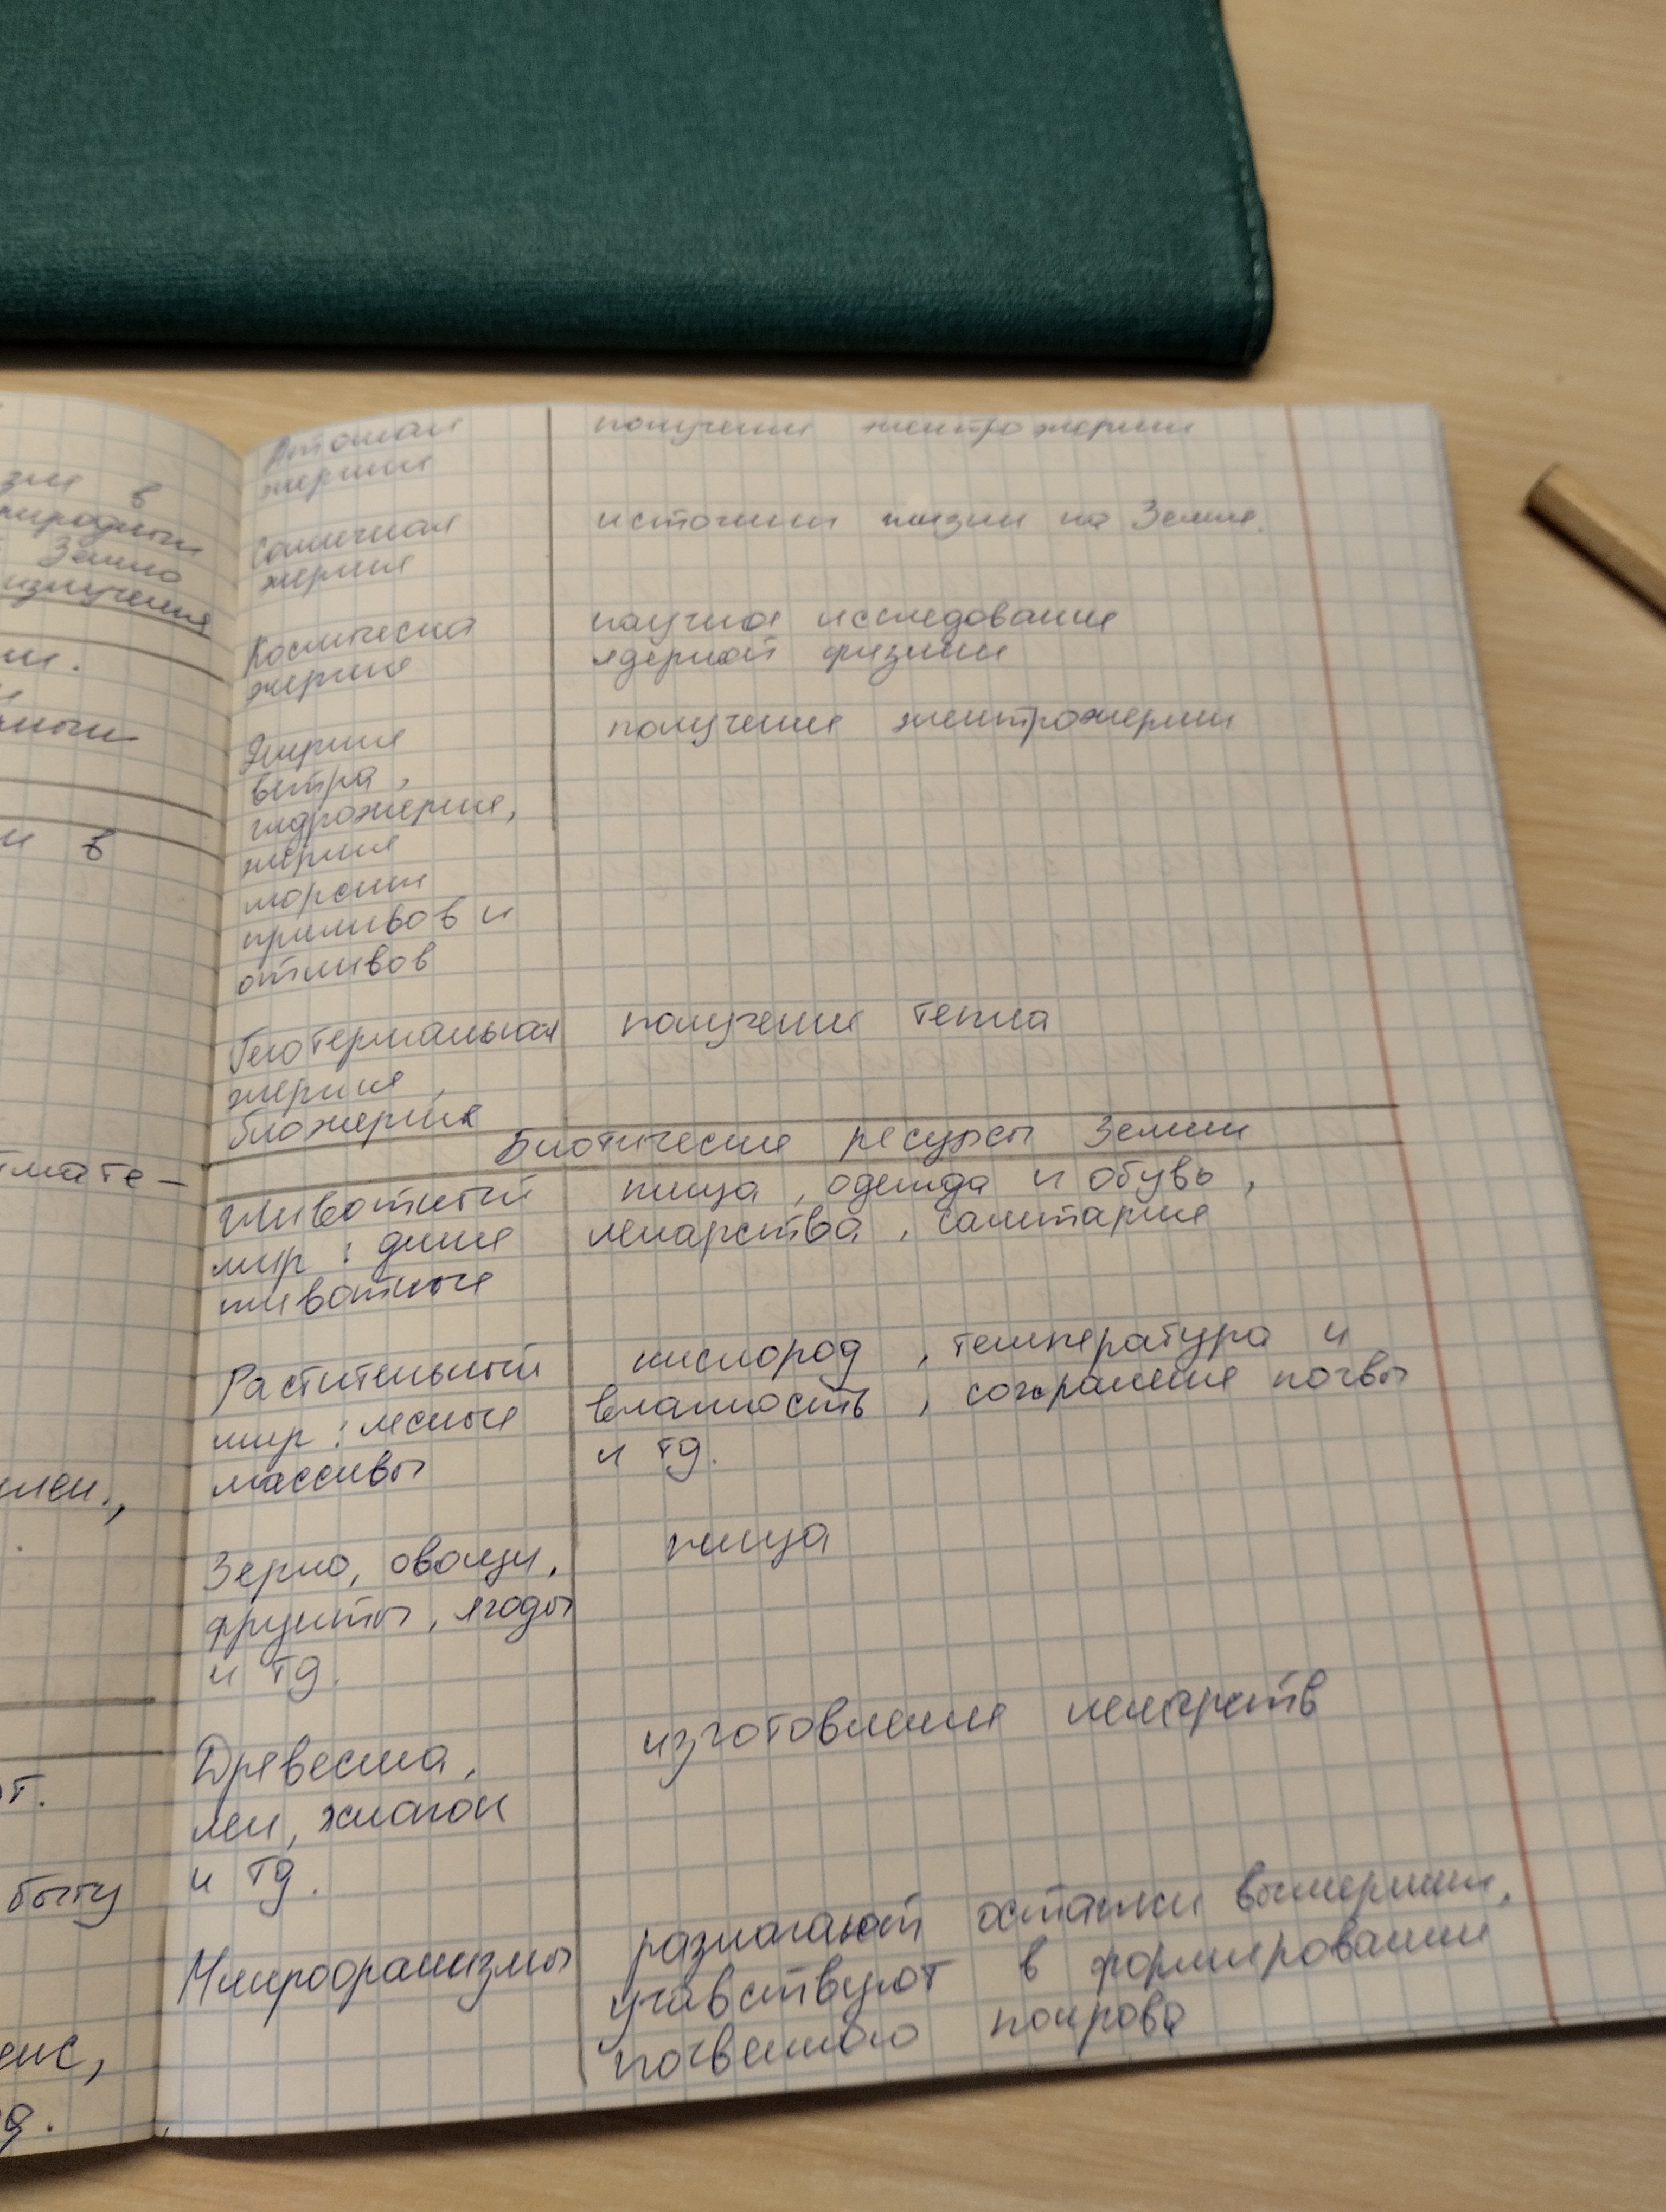 зии в
природных
Землю
излучения
ии.
и в
тмате-
млен.,
от.
быту
енс,
д.
Атомная получение электроэнергии
энергия
Солнечная источник жизни на Земле.
энергия
Космическа научное исследование
энергия ядерной физики
Энергия получение электроэнергии
ветра,
гидроэнергия,
энергия
морских
приливов и
отливов
Геотермальная получение тепла
энергия,
биоэнергия
Биотические ресурсы Земли
Животный пища, одежда и обувь,
мир: дикие лекарства, санитария
животные
Растительный кислород, температура и
мир: лесные влажность, сохранение почвы
массивы и тд.
Зерно, овощи, пища
фрукты, ягоды
и тд.
Древесина, изготовление лекарств
лен, хлопок
и тд.
Микроорганизмы разлагают остатки вымерших,
учавствуют в формировании
почвенного покрова